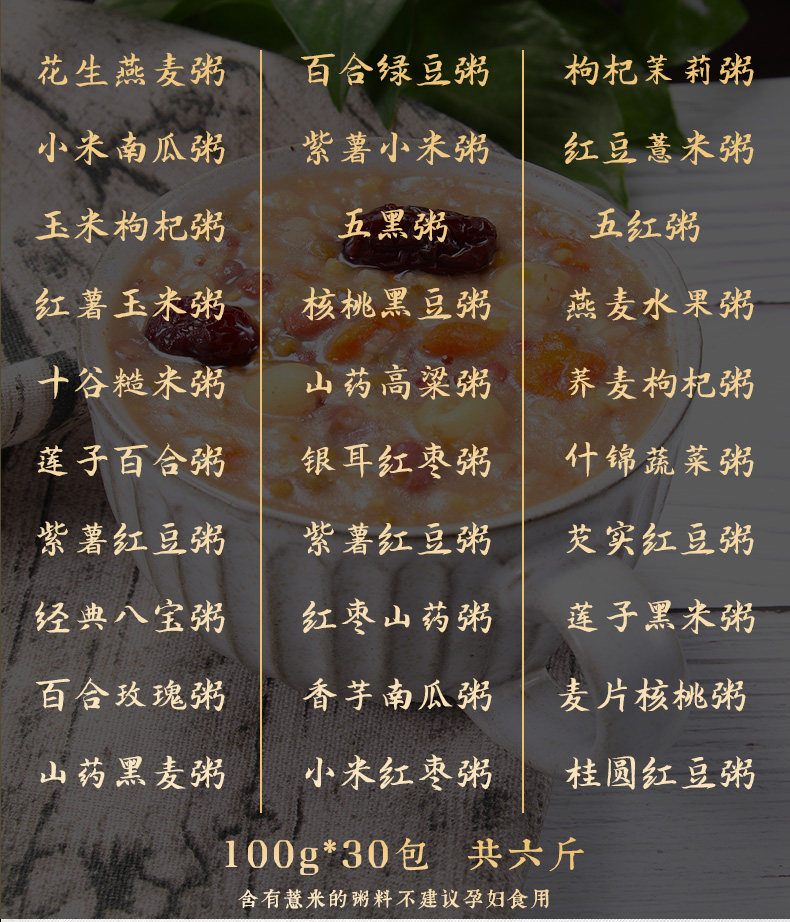 花生燕麦粥 百合绿豆粥 枸杞茉莉粥
小米南瓜粥 紫薯小米粥 红豆薏米粥
玉米枸杞粥 五黑粥 五红粥
红薯玉米粥 核桃黑豆粥 燕麦水果粥
十谷糙米粥 山药高粱粥 荞麦枸杞粥
莲子百合粥 银耳红枣粥 什锦蔬菜粥
紫薯红豆粥 紫薯红豆粥 芡实红豆粥
经典八宝粥 红枣山药粥 莲子黑米粥
百合玫瑰粥 香芋南瓜粥 麦片核桃粥
山药黑麦粥 小米红枣粥 桂圆红豆粥
100g*30包 共六斤
含有薏米的粥料不建议孕妇食用